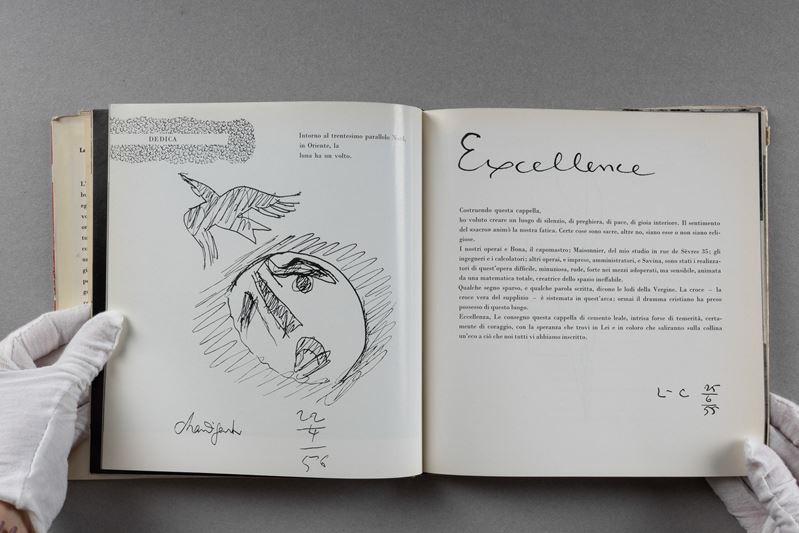 DEDICA
Intorno al trentesimo parallelo Nord,
in Oriente, la
luna ha un volto.
Chandigarh
22
4
56
Excellence
Costruendo questa cappella,
ho voluto creare un luogo di silenzio, di preghiera, di pace, di gioia interiore. Il sentimento
del «sacro» animò la nostra fatica. Certe cose sono sacre, altre no, siano esse o non siano reli-
giose.
I nostri operai e Bona, il capomastro; Maisonnier, del mio studio in rue de Sèvres 35; gli
ingegneri e i calcolatori; altri operai, e imprese, amministratori, e Savina, sono stati i realizza-
tori di quest'opera difficile, minuziosa, rude, forte nei mezzi adoperati, ma sensibile, animata
da una matematica totale, creatrice dello spazio ineffabile.
Qualche segno sparso, e qualche parola scritta, dicono le lodi della Vergine. La croce – la
croce vera del supplizio – è sistemata in quest'arca; ormai il dramma cristiano ha preso
possesso di questo luogo.
Eccellenza, Le consegno questa cappella di cemento leale, intrisa forse di temerità, certa-
mente di coraggio, con la speranza che trovi in Lei e in coloro che saliranno sulla collina
un'eco a ciò che noi tutti vi abbiamo inscritto.
L-C 25
6
55